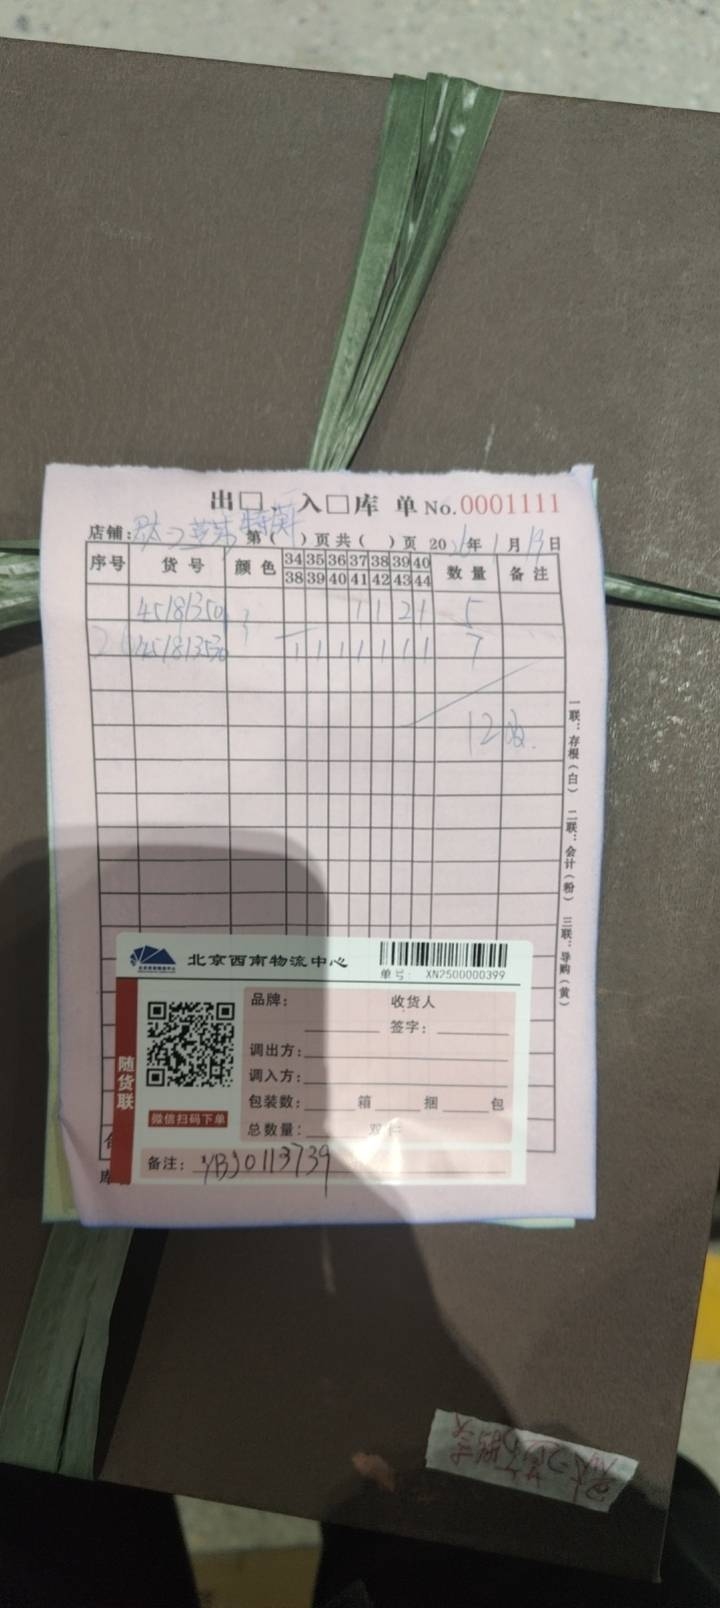 出□ 入□库 单 No.0001111
店铺: 第( )页共( )页 20 年1月13日
序号 货号 颜色 34 35 36 37 38 39 40 数量 备注
38 39 40 41 42 43 44
4518135 1 1 2 1 5
451813530 1 1 1 1 1 1 1 7
12双
一联:存根(白) 二联:会计(粉) 三联:导购(黄)
北京西南物流中心
单号: XN2500000399
随货联
微信扫码下单
品牌: 收货人
签字:
调出方:
调入方:
包装数: 箱 捆 包
总数量: 双
备注: YBJ0113739
库